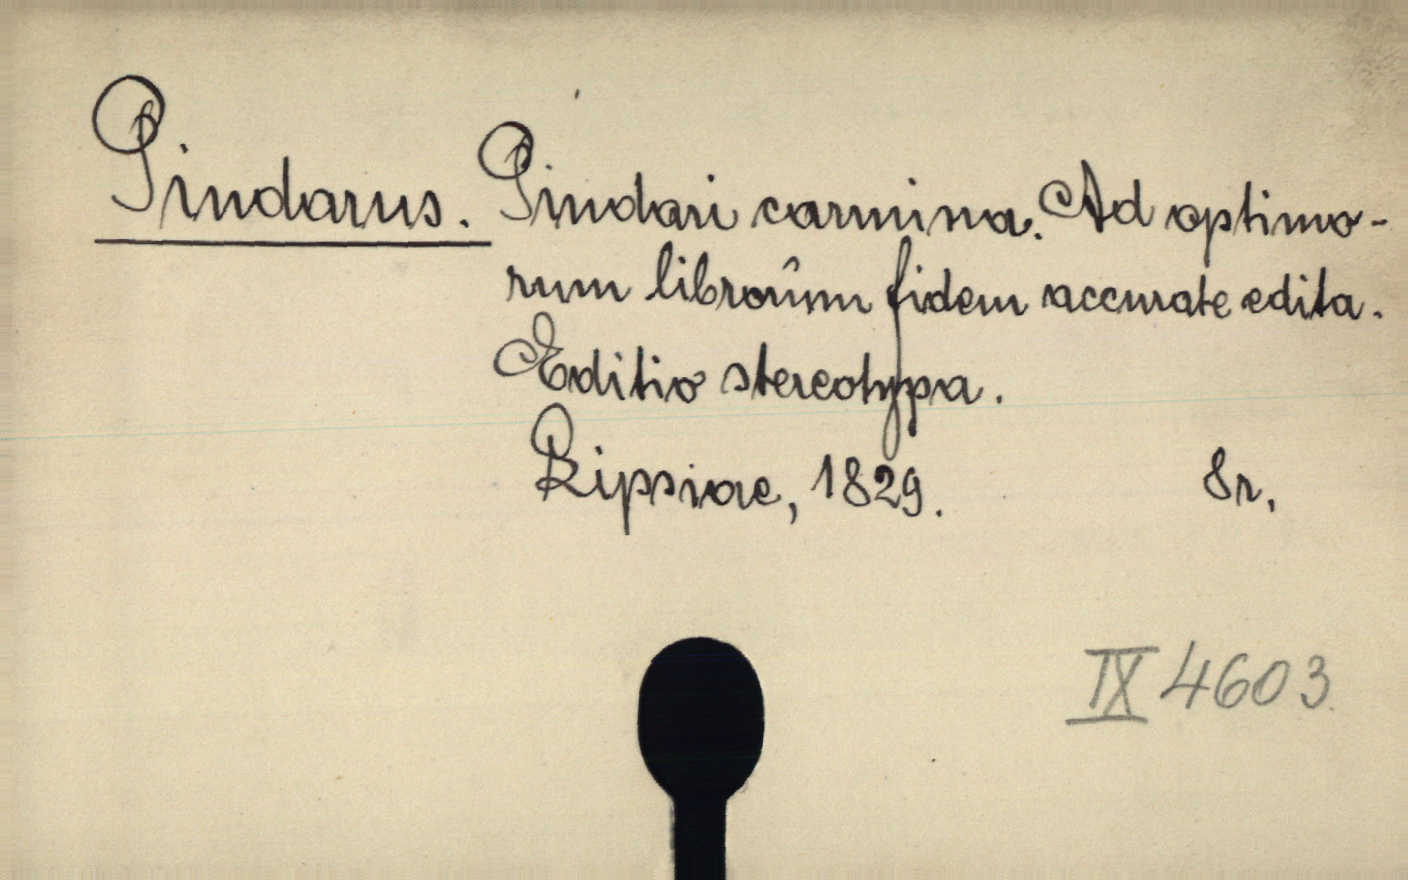 Pindarus. Pindari carmina. Ad optimo-
rum librorûm fidem accurate edita.
Editio stereotypa.
Lipsiae, 1829. 8r.
IX 4603